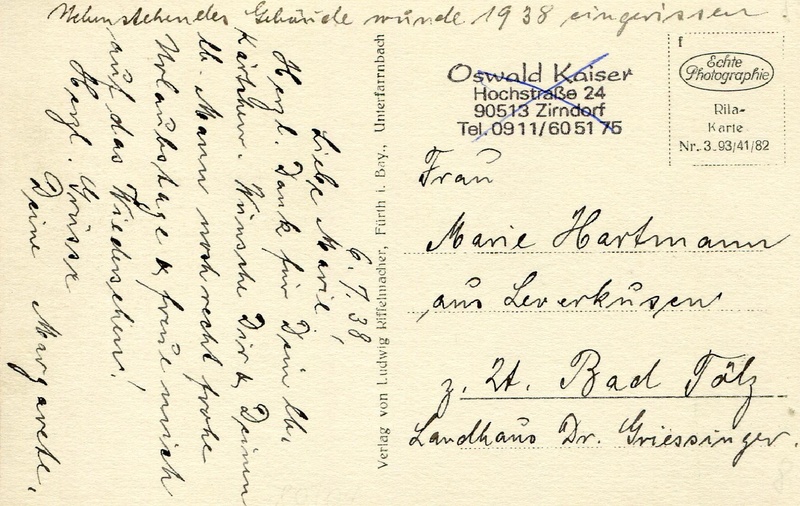 Nebenstehendes Gebäude wurde 1938 eingerissen.
6.7.38
Liebe Marie!
Herzl. Dank für Dein lb.
Kärtchen. Wünsche Dir & Deinem
lb. Mann noch recht frohe
Urlaubstage & freue mich
auf das Wiedersehen!
Herzl. Grüsse
Deine Margarete.
Verlag von Ludwig Riffelmacher, Fürth i. Bay., Unterfarrnbach
Oswald Kaiser
Hochstraße 24
90513 Zirndorf
Tel. 0911/605175
f
Echte
Photographie
Rila-
Karte
Nr. 3.93/41/82
Frau
Marie Hartmann
aus Leverkusen
z. Zt. Bad Tölz
Landhaus Dr. Griessinger.